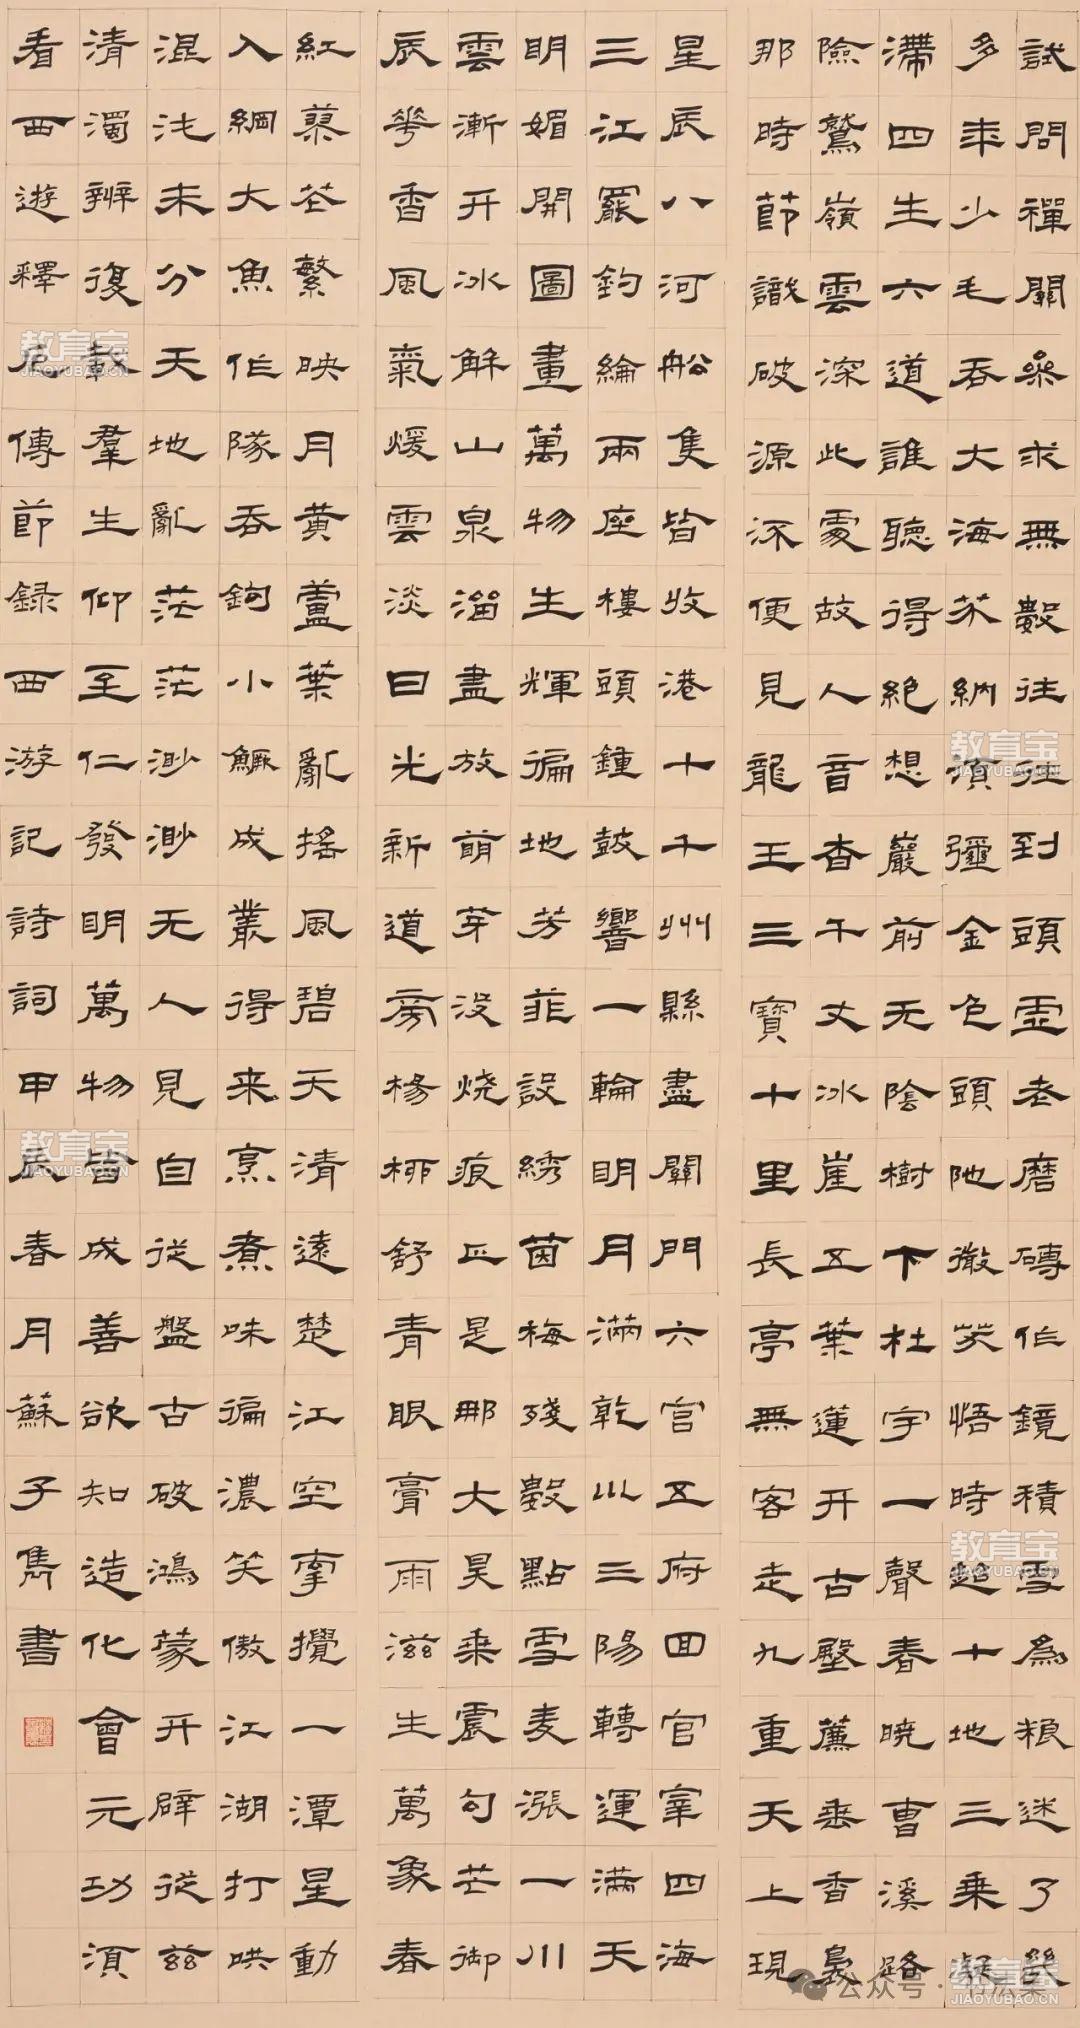 試問禪關參求無數往往到頭虛老磨磚作鏡積雪為粮迷了幾
多年少毛吞大海芥納須彌金色頭陀微笑悟時超十地三乘凝
滯四生六道誰聽得絕想巖前无陰樹下杜宇一聲春曉曹溪路
險鷲嶺雲深此處故人音杳千丈冰崖五葉蓮开古殿簾垂香裊
那時節識破源流便見龍王三寶十里長亭無客走九重天上現
星辰八河船隻皆收港十千州縣盡關門六宮五府回官宰四海
三江罷釣綸兩座樓頭鍾鼓響一輪明月滿乾川三陽轉運滿天
明媚開圖畫萬物生輝徧地芳菲設綉茵梅殘數點雪麦漲一川
雲漸开冰解山泉溜盡放萌芽没燒痕正是那大昊乘震勾芒御
辰花香風氣煖雲淡日光新道旁楊柳舒青眼膏雨滋生萬象春
紅蓼花繁映月黃蘆葉亂搖風碧天清遠楚江空牽攪一潭星動
入網大魚作隊吞鉤小鱖成叢得来烹煮味徧濃笑傲江湖打哄
混沌未分天地亂茫茫渺渺无人見自從盤古破鴻蒙开辟從茲
清濁辨復載羣生仰至仁發明萬物皆成善欲知造化會元功須
看西遊釋厄傳節録西游記詩詞甲辰春月蘇子雋書
教育宝
JIAOYUBAO.CN
教育宝
JIAOYUBAO.CN
教育宝
JIAOYUBAO.CN
教育宝
JIAOYUBAO.CN
公众号
JIAOYUBAO.CN